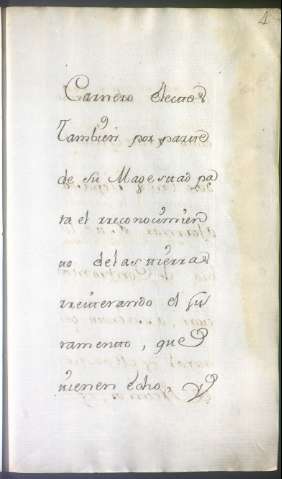 4
Camero electo
Tambien por parte
de su Magestad pa
ra el rreconocimien
to de las tierras
rreiterando el ju
ramento, que
tienen echo, Y